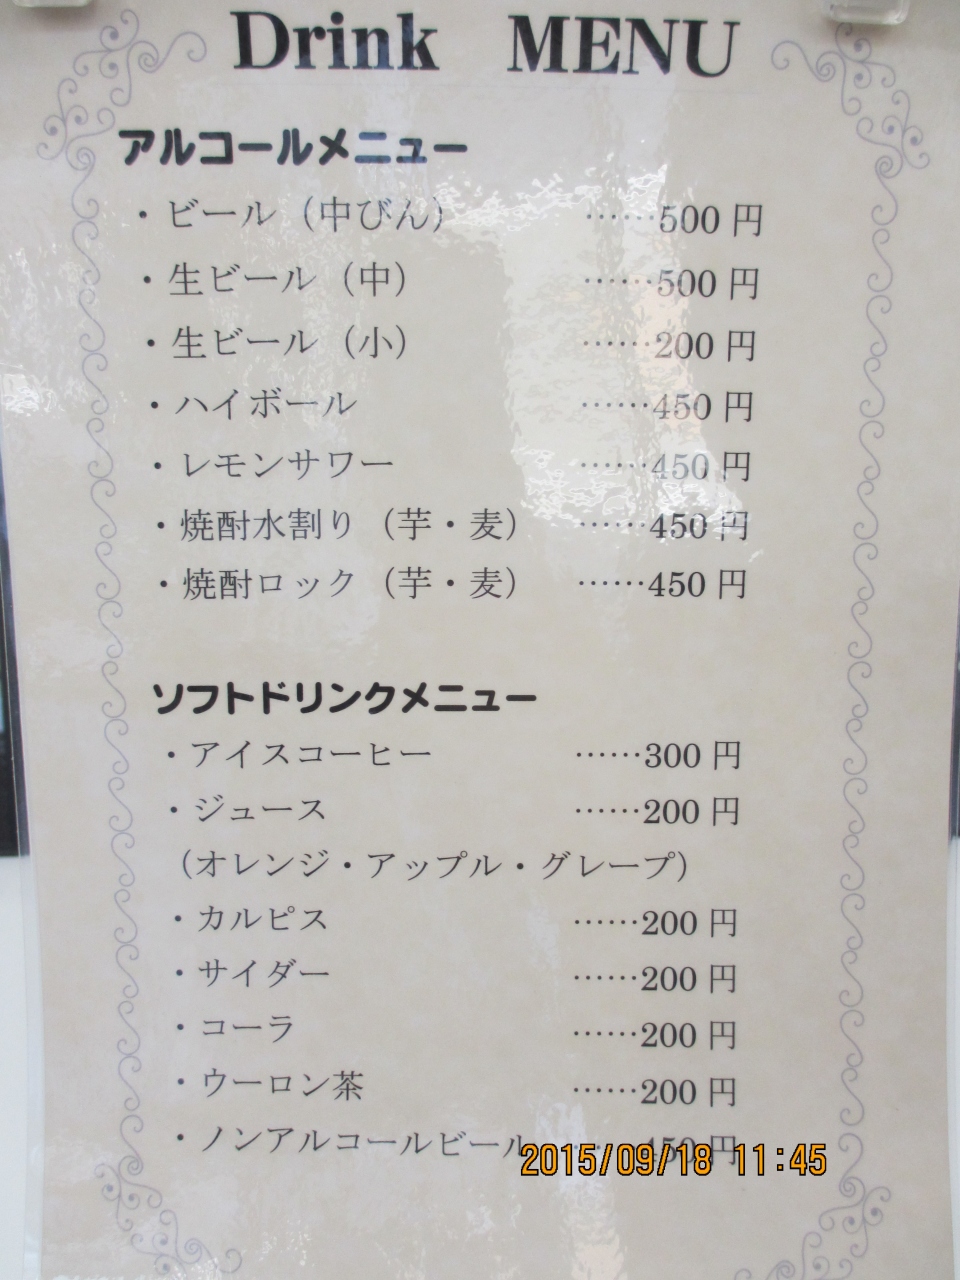 Drink MENU
アルコールメニュー
・ビール（中びん） ……500 円
・生ビール（中） ……500 円
・生ビール（小） ……200 円
・ハイボール ……450 円
・レモンサワー ……450 円
・焼酎水割り（芋・麦） ……450 円
・焼酎ロック（芋・麦） ……450 円
ソフトドリンクメニュー
・アイスコーヒー ……300 円
・ジュース ……200 円
（オレンジ・アップル・グレープ）
・カルピス ……200 円
・サイダー ……200 円
・コーラ ……200 円
・ウーロン茶 ……200 円
・ノンアルコールビール ……450 円
2015/09/18 11:45